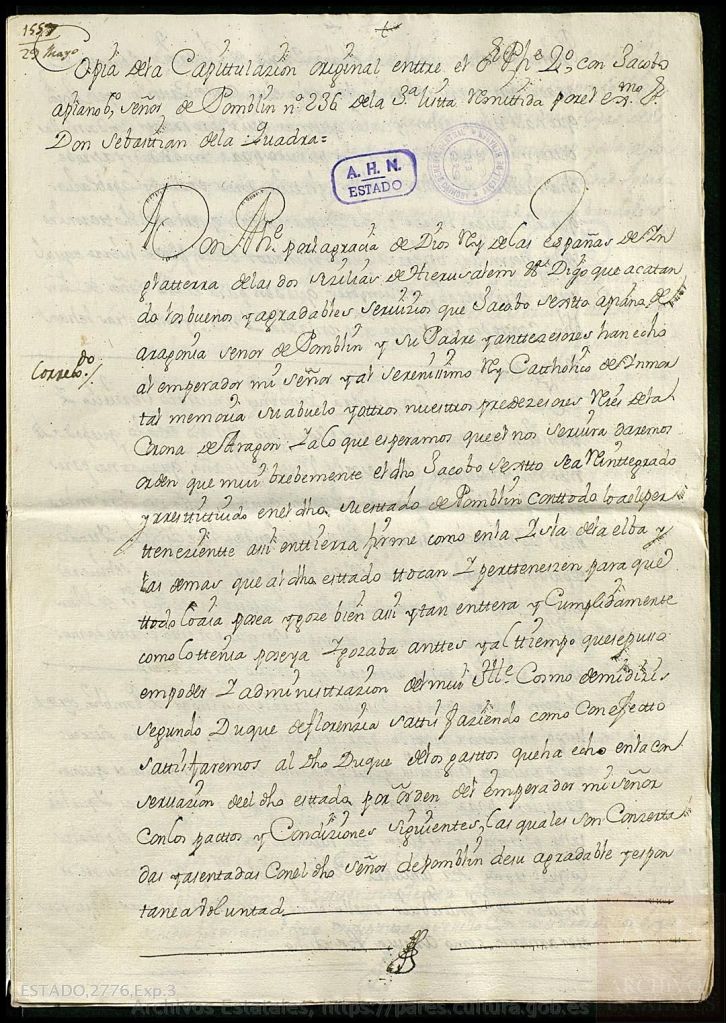 1557
29 Mayo
Copia dela Capittulazion original enttre el Sr. Phe. 2º, con Jacobo
apiano 6º, señor de Pomblin nº 236 dela 3ª lista Remittida por el exmo. Sr.
Don sebasttian dela Quadra=
A. H. N.
ESTADO
Don Phe. por la gracia de Dios Rey de las españas de In
glatterra de las dos sizilias de Hierusalem &ª Digo que acatan
do los buenos y agradables servizios que Jacobo sextto apiano de
aragonia señor de Pomblin y su Padre y anttezesores han echo
al emperador mi señor y al serenissimo Rey Catthólico de Inmor
tal memoria su abuelo y ottros nuestros predezesores Reies dela
Correxdo./.
Corona de Aragon y a lo que esperamos que el nos servira daremos
orden que mui brebemente el dho Jacobo sextto sea Reinttegrado
y rresttittuido en el dho su estado de Pomblin con ttodo lo a el per
tteneziente assi en ttierra firme como en la Isla dela elba y
las demas que al dho esttado ttocan y pertteneszen para que
ttodo lo aia posea y goze bien assi y tan enttera y Cumplidamente
como lo ttenia poseya y gozaba anttes y al ttiempo que se puso
em poder y administtrazion del mui Ille. Cosmo de midizis
segundo Duque de florenzia sattisfaziendo como Con efectto
sattisfaremos al dho Duque de los gasttos que ha echo en la con
servazion de el dho esttado por orden del emperador mi señor
Con los pacttos y Condiziones siguientes, las quales son Conzerta
das y asentadas Con el dho señor de pomblin de su agradable y espon
tanea voluntad
ESTADO,2776,Exp.3
Archivos Estatales, https://pares.cultura.gob.es